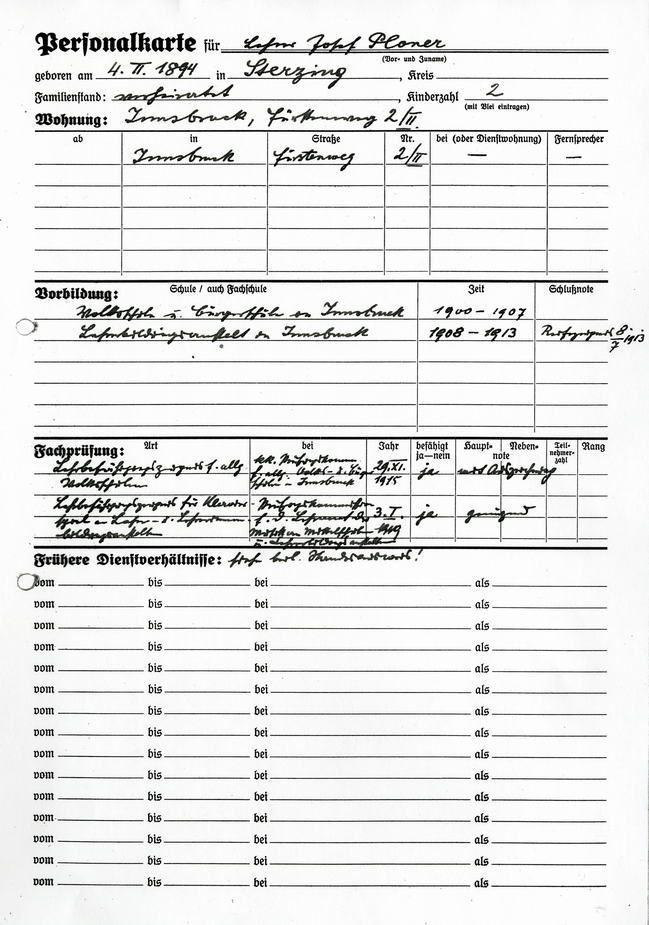 Personalkarte für Lehrer Josef Ploner
(Vor- und Zuname)
geboren am 4. II. 1894 in Sterzing, Kreis
Familienstand: verheiratet, Kinderzahl 2
(mit Blei eintragen)
Wohnung: Innsbruck, Fürstenweg 2/II
ab in Straße Nr. bei (oder Dienstwohnung) Fernsprecher
Innsbruck Fürstenweg 2/II — —
Vorbildung: Schule / auch Fachschule Zeit Schlußnote
Volksschule u. Bürgerschule in Innsbruck 1900 – 1907
Lehrerbildungsanstalt in Innsbruck 1908 – 1913 Reifezeugnis 8./7 1913
Fachprüfung: Art bei Jahr befähigt ja—nein Haupt- Neben- note Teil-nehmer-zahl Rang
Lehrbefähigungszeugnis f. allg. k.k. Prüfungskomm. 29. XI. ja mit Auszeichnung
Volksschulen f. allg. Volks- u. Bürgerschulen Innsbruck 1915
Lehrbefähigungszeugnis für Klavier- Prüfungskommission 3. I. ja genügend
spiel an Lehrer- u. Lehrerinnen- f. d. Lehramt der 1919
bildungsanstalten Musik an Mittelschulen
u. Lehrerbildungsanstalten
Frühere Dienstverhältnisse:
vom bis bei als
vom bis bei als
vom bis bei als
vom bis bei als
vom bis bei als
vom bis bei als
vom bis bei als
vom bis bei als
vom bis bei als
vom bis bei als
vom bis bei als
vom bis bei als
vom bis bei als
vom bis bei als
vom bis bei als